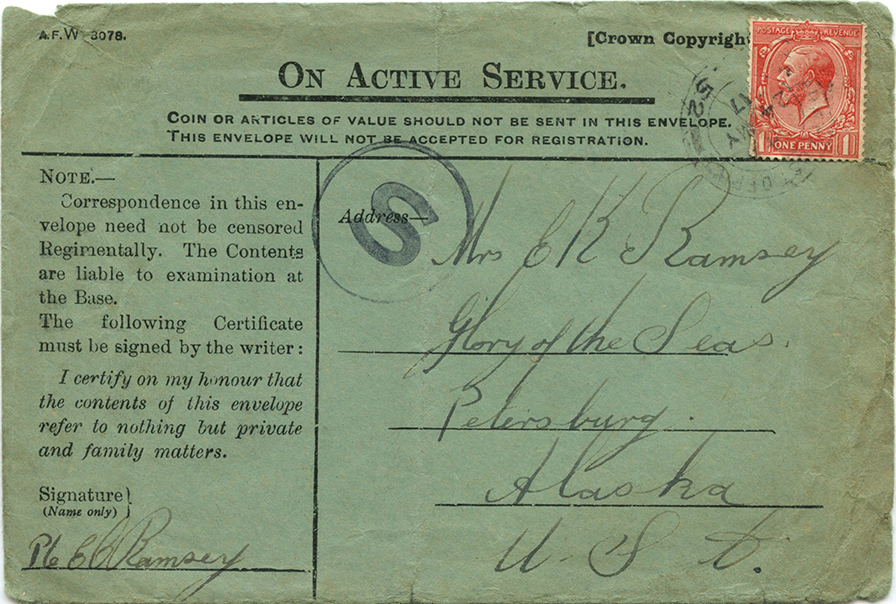 A.F.W 3078.
[Crown Copyright
ON ACTIVE SERVICE.
POSTAGE REVENUE
1 ONE PENNY 1
COIN OR ARTICLES OF VALUE SHOULD NOT BE SENT IN THIS ENVELOPE.
THIS ENVELOPE WILL NOT BE ACCEPTED FOR REGISTRATION.
NOTE.—
Correspondence in this en-
velope need not be censored
Regimentally. The Contents
are liable to examination at
the Base.
The following Certificate
must be signed by the writer:
I certify on my honour that
the contents of this envelope
refer to nothing but private
and family matters.
Signature
(Name only)
Pte E C Ramsey
S
Address—
Mrs E K Ramsey
Glory of the Seas.
Petersburg.
Alaska
U. S. A.